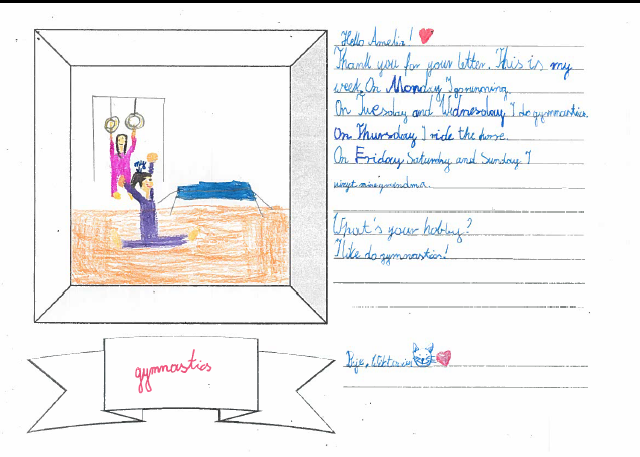 Hello Amelia!
Thank you for your letter. This is my
week. On Monday I go running.
On Tuesday and Wednesday I do gymnastics.
On Thursday I ride the horse.
On Friday Saturday and Sunday I
grandma.
What's your hobby?
I like do gymnastics!
gymnastics